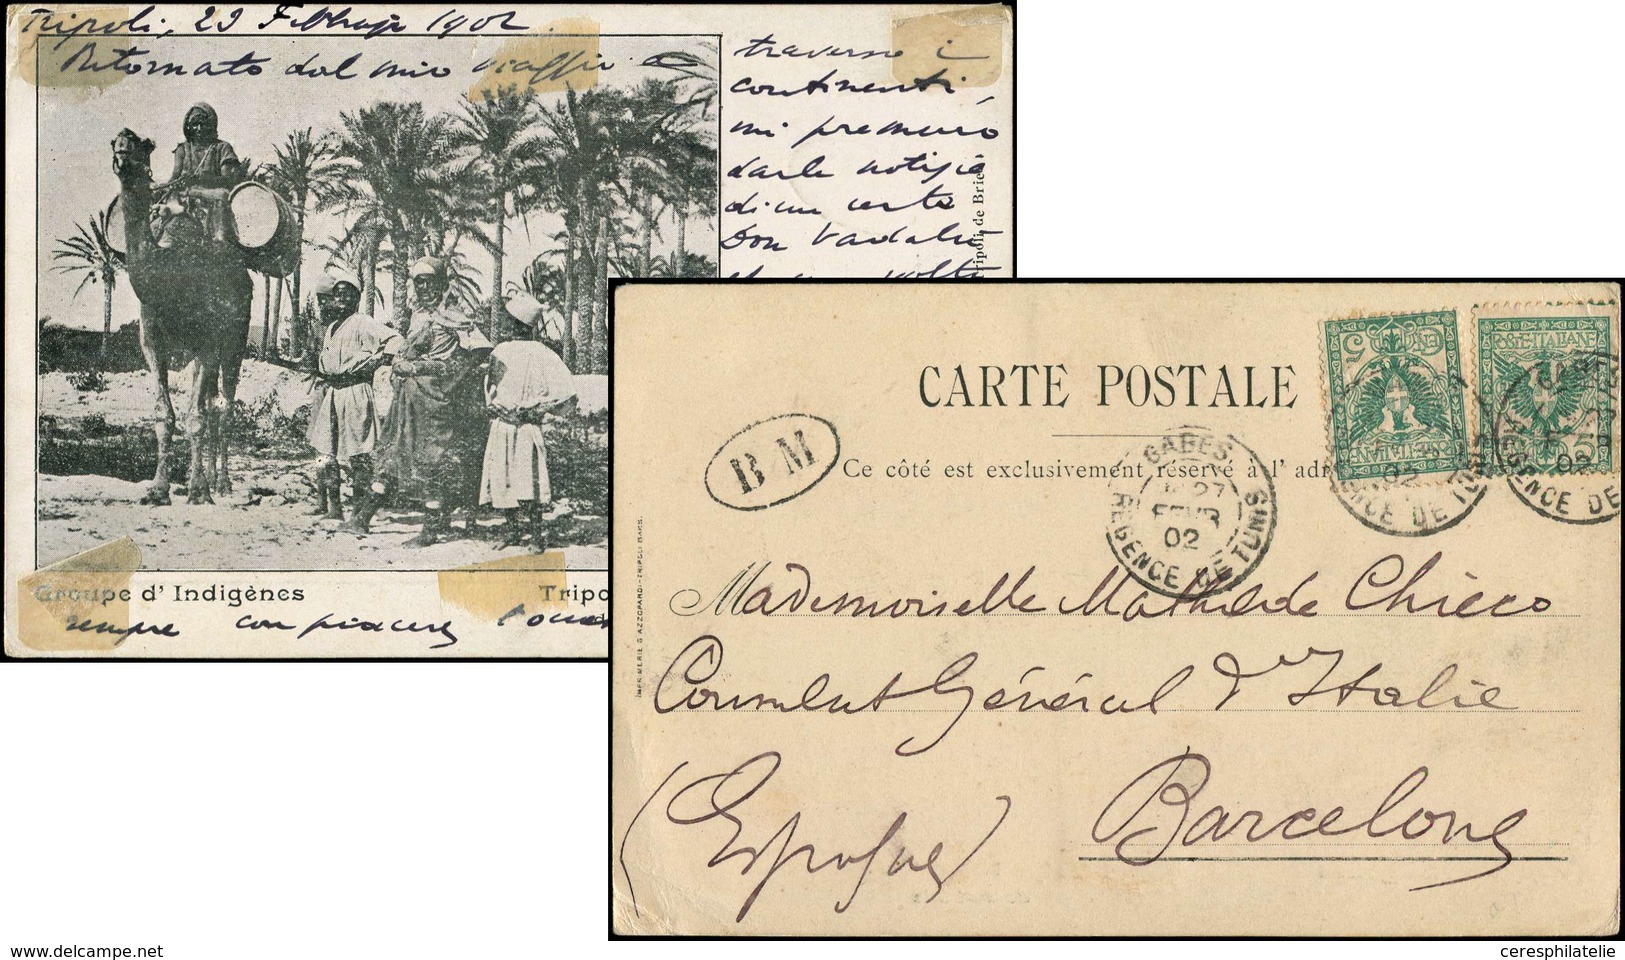 Tripoli, 23 Febbrajo 1902.
Ritornato dal mio viaggio a
traverso i
continenti,
mi premuro
darle notizie
di un certo
Don
Tripoli de
Groupe d' Indigènes
Tripo
sempre con piacere
CARTE POSTALE
Ce côté est exclusivement réservé à l' adr
B M
GABES
27
FEVR
02
REGENCE DE TUNIS
5
POSTE·ITALIANE
02
GENCE DE TUNIS
02
GENCE DE
IMPRIMERIE G. AZZOPARDI-TRIPOLI BARB.
Mademoiselle Mathilde Chicco
Consulat Général d'Italie
Barcelone
(Espagne)
delcampe.net
ceresphilatelie